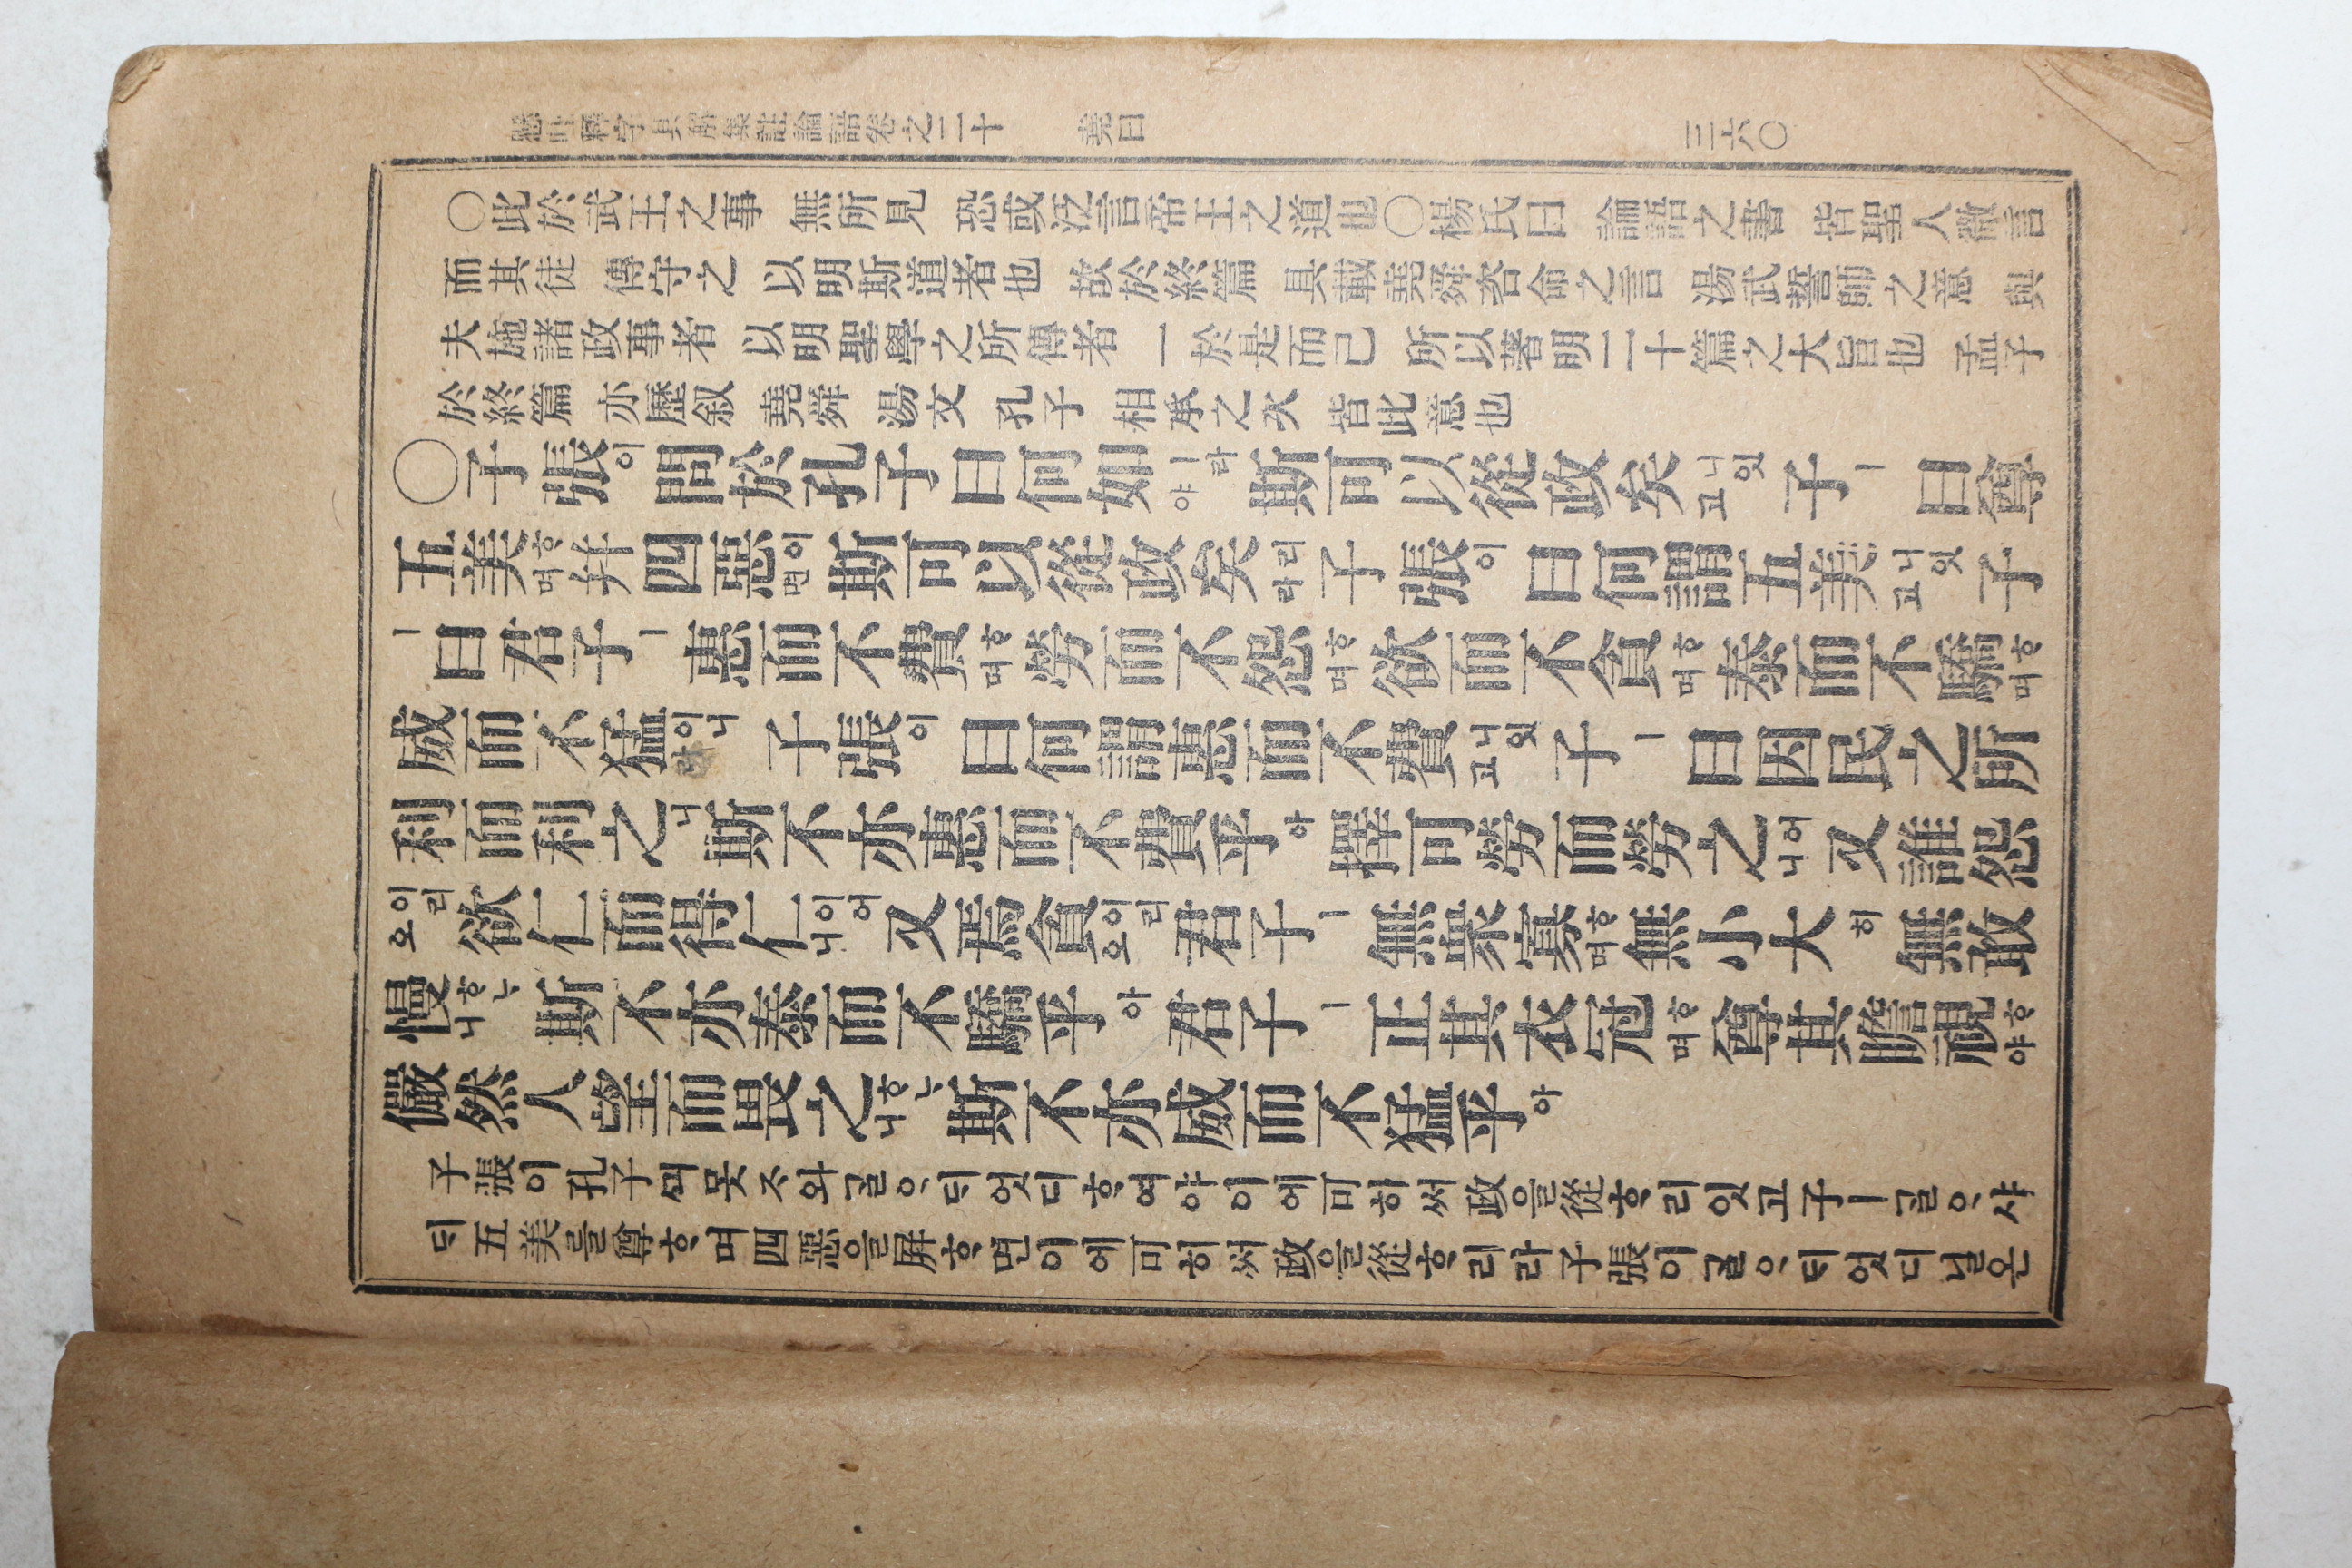 懸吐釋字具解集註論語卷之二十 堯曰 三六〇
○此於武王之事 無所見 恐或泛言帝王之道也○楊氏曰 論語之書 皆聖人微言
而其徒 傳守之 以明斯道者也 故於終篇 具載堯舜咨命之言 湯武誓師之意 與
夫施諸政事者 以明聖學之所傳者 一於是而已 所以著明二十篇之大旨也 孟子
於終篇 亦歷叙 堯舜 湯文 孔子 相承之次 皆此意也
○子張이問於孔子曰何如ㅣ라야斯可以從政矣니잇고子ㅣ曰尊
五美ᄒᆞ며屛四惡이면斯可以從政矣리라子張이曰何謂五美니잇고子
ㅣ曰君子ㅣ惠而不費ᄒᆞ며勞而不怨ᄒᆞ며欲而不貪ᄒᆞ며泰而不驕ᄒᆞ며
威而不猛이니라子張이曰何謂惠而不費니잇고子ㅣ曰因民之所
利而利之니斯不亦惠而不費乎아擇可勞而勞之어니又誰怨
이리오欲仁而得仁이어니又焉貪이리오君子ㅣ無衆寡ᄒᆞ며無小大히無敢
慢ᄒᆞᄂᆞ니斯不亦泰而不驕乎아君子ㅣ正其衣冠ᄒᆞ며尊其瞻視ᄒᆞ야
儼然人望而畏之ᄒᆞᄂᆞ니斯不亦威而不猛乎아
子張이孔子ᄭᅴ뭇ᄌᆞ와ᄀᆞᆯᄋᆞᄃᆡ엇디ᄒᆞ여야이에可히써政을從ᄒᆞ리잇고子ㅣᄀᆞᆯᄋᆞ샤
ᄃᆡ五美를尊ᄒᆞ며四惡을屛ᄒᆞ면이에可히써政을從ᄒᆞ리라子張이ᄀᆞᆯᄋᆞᄃᆡ엇디닐온